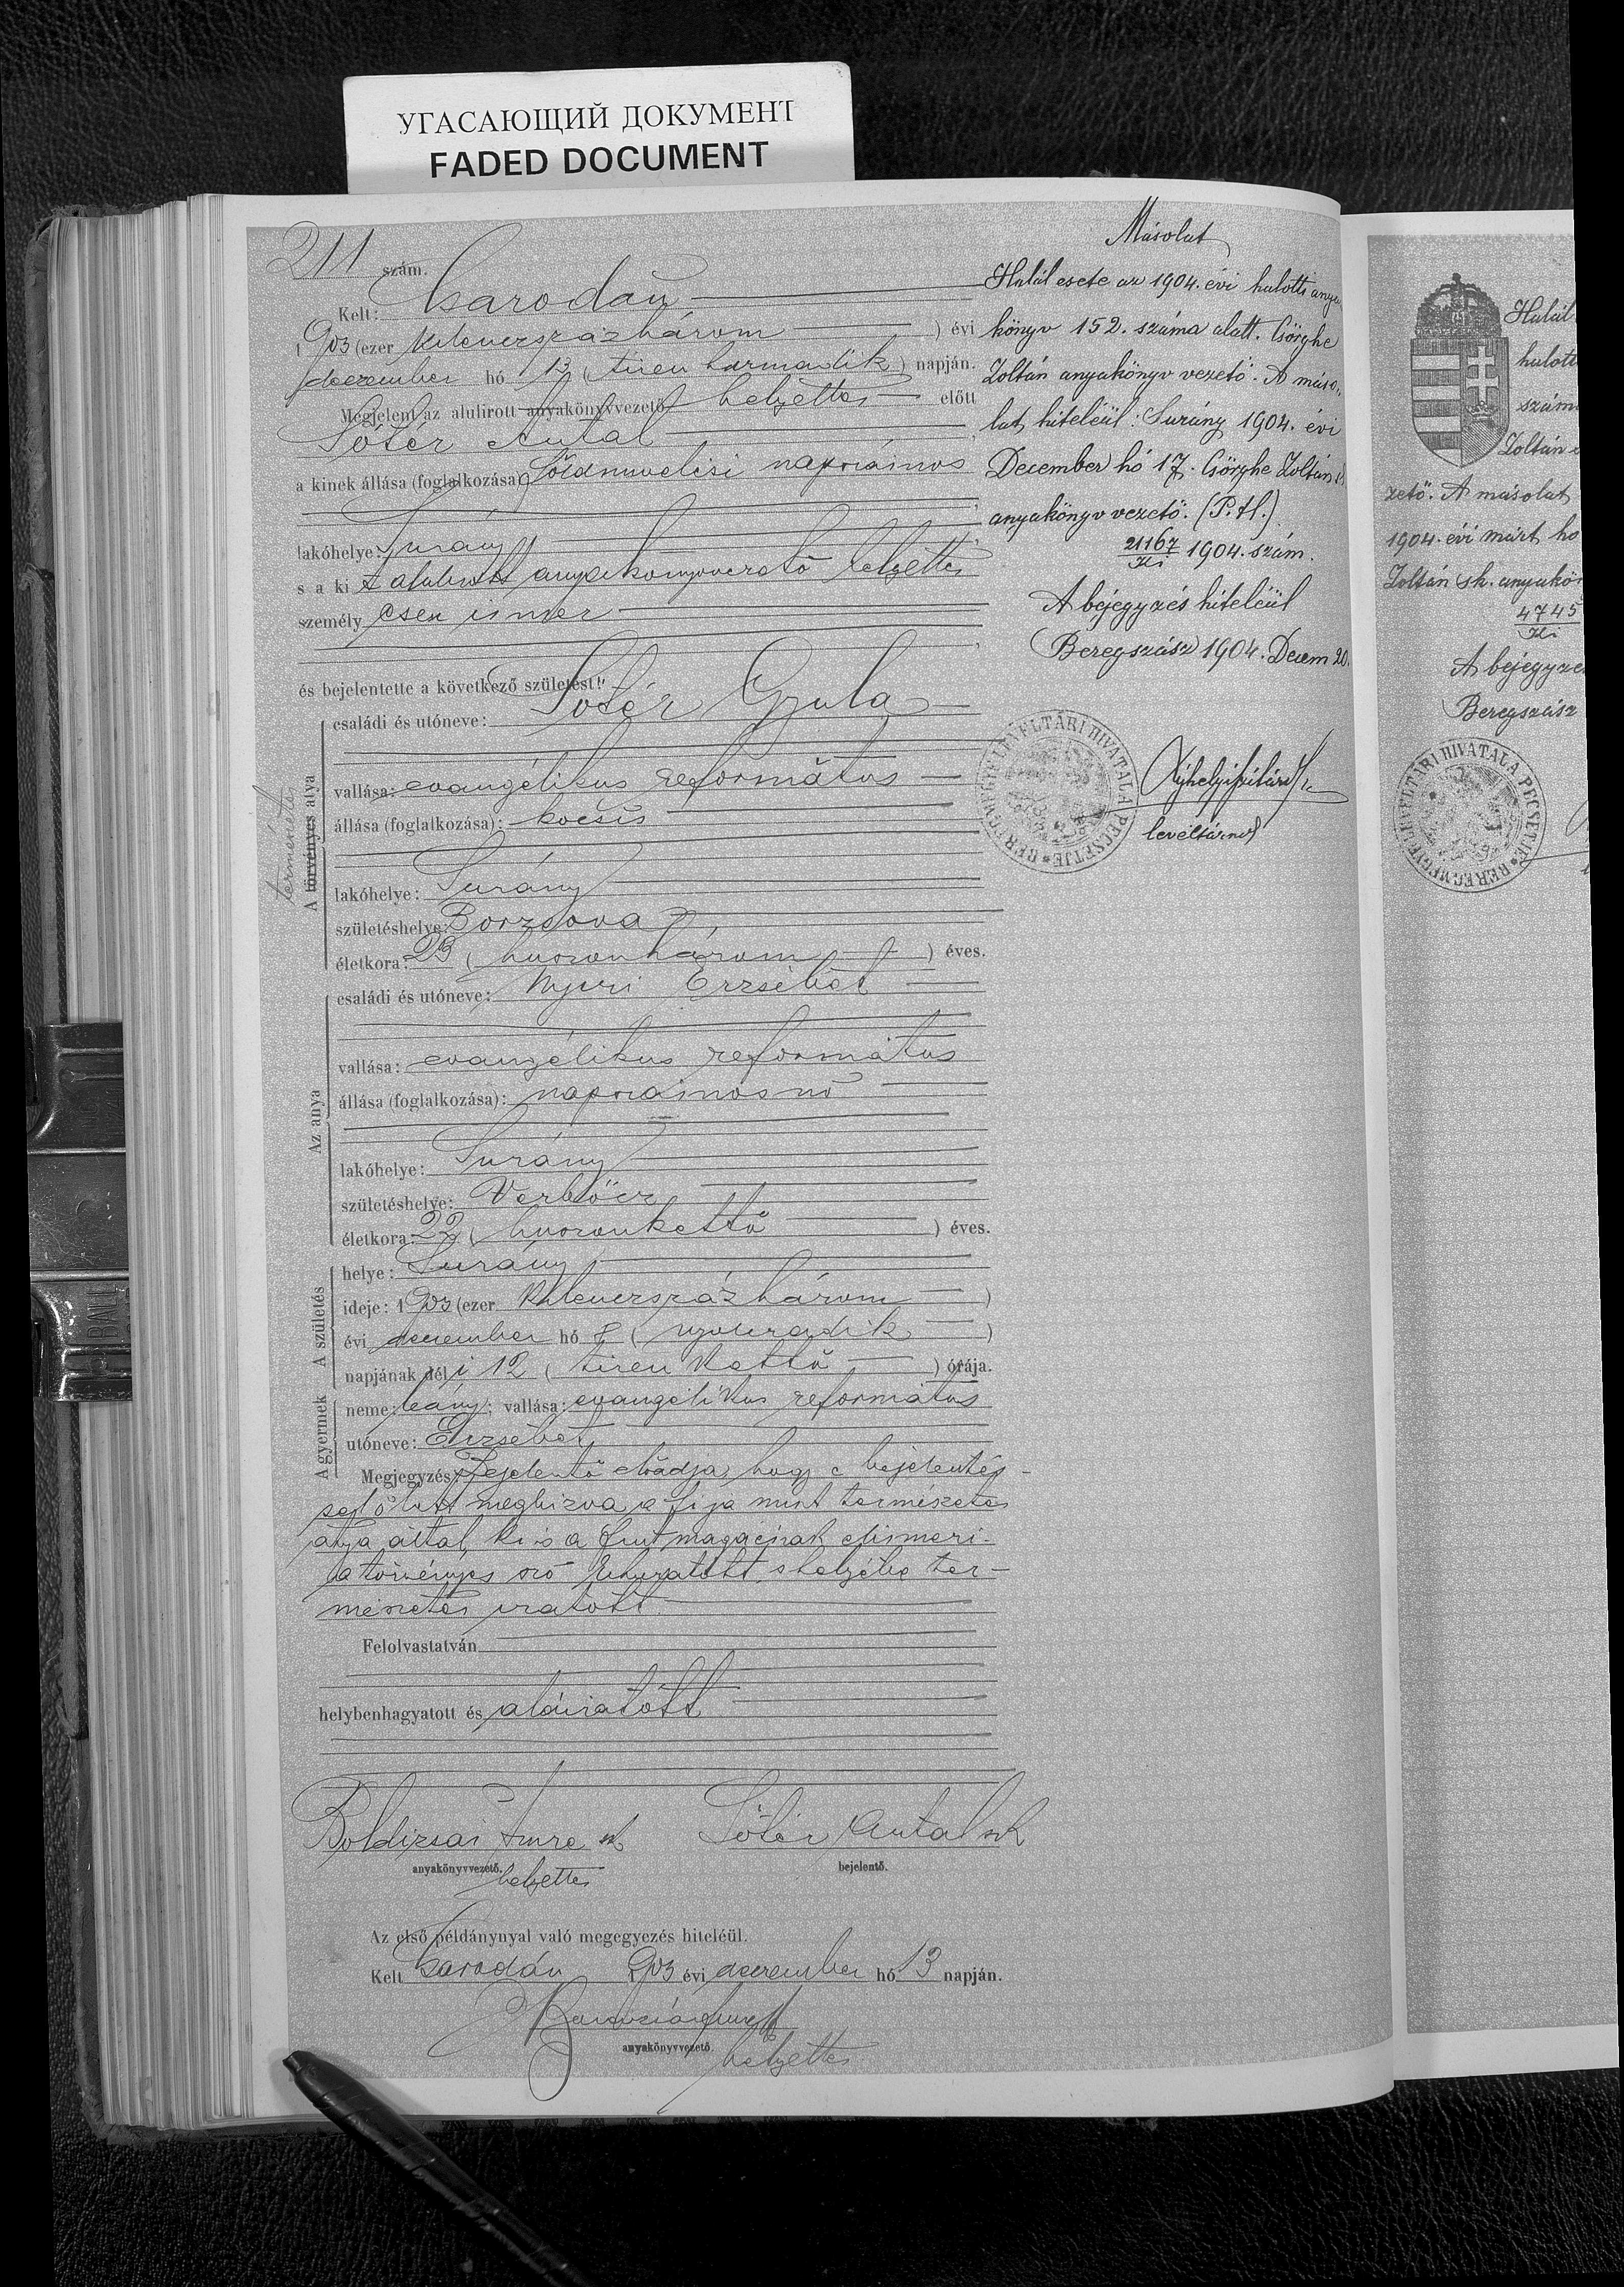 УГАСАЮЩИЙ ДОКУМЕНТ
FADED DOCUMENT
211 szám.
Kelt: Csarodán
1903 (ezer kilencszázhárom ) évi
deczember hó 13 (tizenharmadik) napján.
Megjelent az alulirott anyakönyvvezető helyettes előtt
Sótér Antal
a kinek állása (foglalkozása) földmivelési napszámos
lakóhelye: Surány
s a ki t alulirott anyakönyvvezető helyettes
személyesen ismer
és bejelentette a következő születést:
természetes
A törvényes atya
családi és utóneve: Sótér Gyula
vallása: evangélikus református
állása (foglalkozása): kocsis
lakóhelye: Surány
születéshelye: Borzsova
életkora: 23 (huszonhárom ) éves.
Az anya
családi és utóneve: Nyiri Erzsébet
vallása: evangélikus református
állása (foglalkozása): napszámosnő
lakóhelye: Surány
születéshelye: Verbőcz
életkora: 22 (huszonkettő ) éves.
A születés
helye: Surány
ideje: 1903 (ezer kilenczszázhárom )
évi deczember hó 8 (nyolczadik )
napjának dél i 12 (tizenkettő ) órája.
A gyermek
neme: leány; vallása: evangélikus református
utóneve: Erzsébet
Megjegyzés: Bejelentő előadja, hogy e bejelentés-
sel ő lett megbizva a fija mint természetes
atya által, ki is a magáénak elismeri.
a törvényes szó kihuzatott s helyébe ter-
mészetes iratott.
Felolvastatván
helybenhagyatott és aláiratott
Boldizsai Imre sk
anyakönyvvezető.
helyettes
Sótér Antal sk
bejelentő.
Az első példánynyal való megegyezés hiteléül.
Kelt Csarodán 1903 évi deczember hó 13 napján.
anyakönyvvezető.
helyettes
Másolat
Halál esete az 1904. évi halotti anya
könyv 152. száma alatt. Csörghe
Zoltán anyakönyv vezető. A máso-
lat hiteléül: Surány 1904. évi
December hó 17. Csörghe Zoltán sk
anyakönyv vezető. (P.H.)
21167 1904. szám.
A bejegyzés hiteléül
Beregszász 1904. Decem 20.
BEREGMEGYE LEVÉLTÁRI HIVATALA PECSETJE
levéltárnok
Halál
halott
szám
Zoltán a
zető. A másolat
1904. évi márt. hó
Zoltán sk. anyakön
4745
A bejegyzé
Beregszász
BEREGMEGYE LEVÉLTÁRI HIVATALA PECSETJE